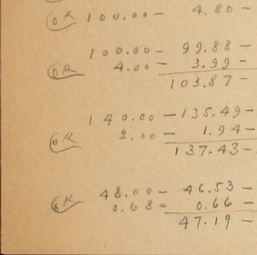 OK 100.00 - 4.80 -
100.00 - 99.88 -
OK 4.00 - 3.99 -
103.87 -
140.00 - 135.49 -
OK 2.00 - 1.94 -
137.43 -
48.00 - 46.53 -
OK 0.68 - 0.66 -
47.19 -